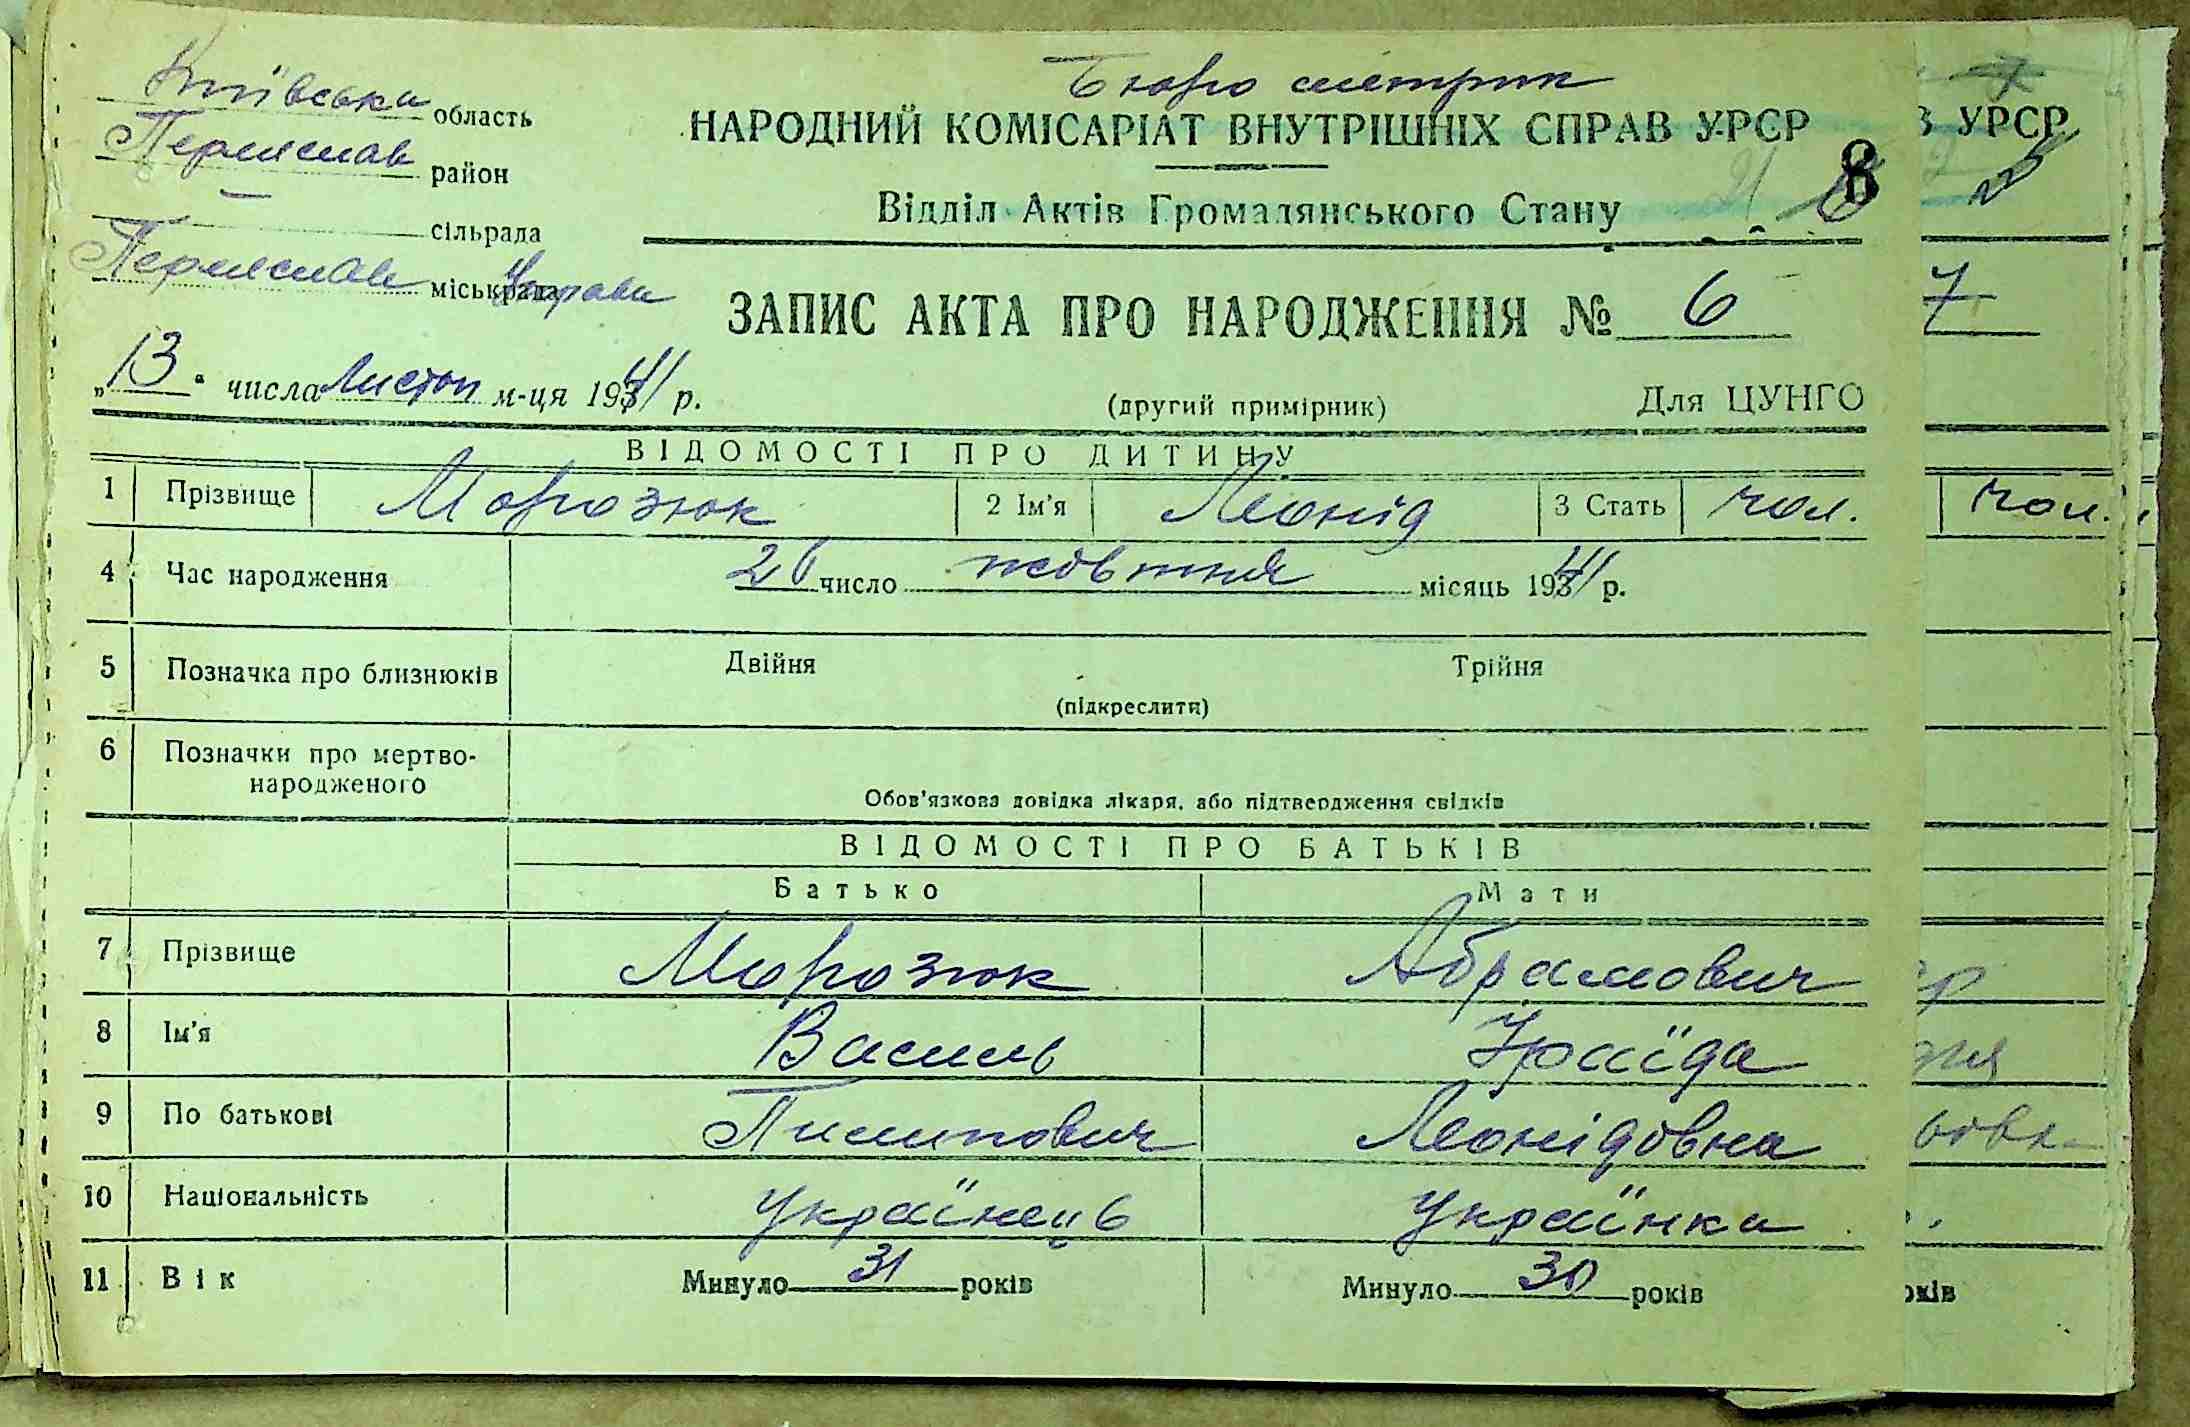 Київська область
Бюро метрик
Переяслав район
НАРОДНИЙ КОМІСАРІАТ ВНУТРІШНІХ СПРАВ УРСР
сільрада
Відділ Актів Громадянського Стану
8
Переяслав міськрада Управа
ЗАПИС АКТА ПРО НАРОДЖЕННЯ № 6
„13" числа Листоп м-ця 1941 р.
(другий примірник)
Для ЦУНГО
ВІДОМОСТІ ПРО ДИТИНУ
1 Прізвище Морозюк 2 Ім'я Леонід 3 Стать чол.
4 Час народження 26 число жовтня місяць 1941 р.
5 Позначка про близнюків Двійня Трійня
(підкреслити)
6 Позначки про мертво-
народженого
Обов'язкова довідка лікаря, або підтвердження свідків
ВІДОМОСТІ ПРО БАТЬКІВ
Батько Мати
7 Прізвище Морозюк Абрамович
8 Ім'я Василь Іраїда
9 По батькові Пилипович Леонідовна
10 Національність Українець Українка
11 Вік Минуло 31 років Минуло 30 років
В УРСР
7
чол.